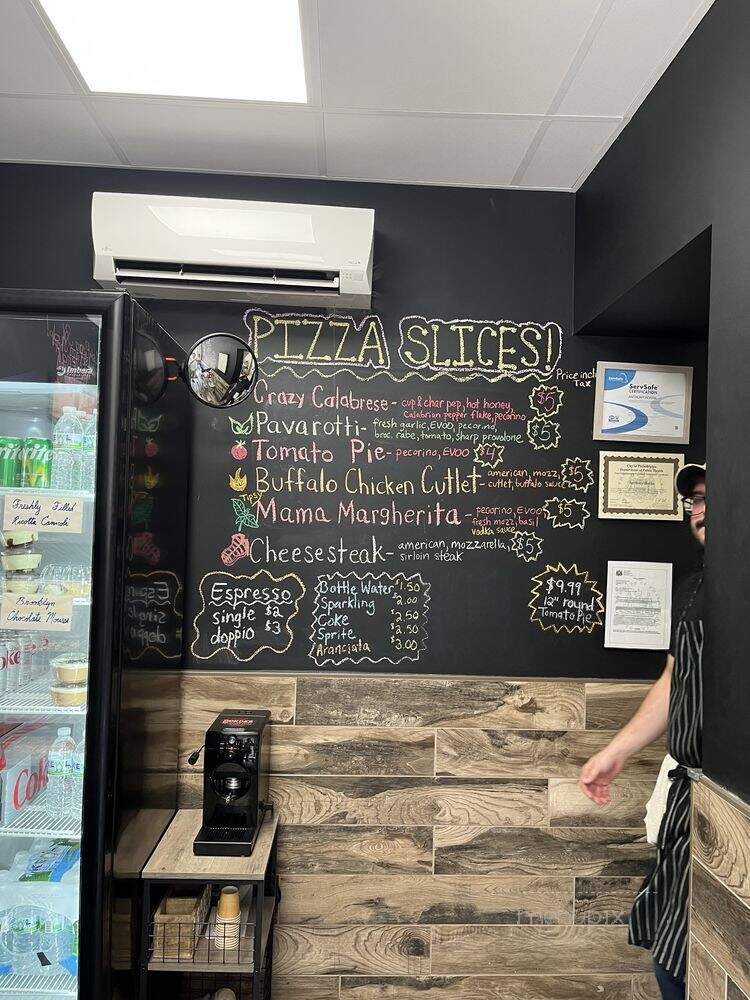 PIZZA SLICES!
Price incl
Tax
Crazy Calabrese - cup & char pep, hot honey, $5
Calabrian pepper flake, pecorino
Pavarotti - fresh garlic, EVOO, pecorino, $5
broc. rabe, tomato, sharp provolone
Tomato Pie - pecorino, EVOO $4
Buffalo Chicken Cutlet - american, mozz, $5
cutlet, buffalo sauce
Tips
Mama Margherita - pecorino, EVOO $5
fresh mozz, basil
vodka sauce
Cheesesteak - american, mozzarella, $5
sirloin steak
Espresso
single $2
doppio $3
Bottle Water $1.50
Sparkling $2.00
Coke 2.50
Sprite $2.50
Aranciata $3.00
$9.99
12" round
Tomato Pie
ServSafe
CERTIFICATION
City of Philadelphia
Department of Public Health
Freshly Filled
Ricotta Cannoli
Brooklyn
Chocolate Mousse